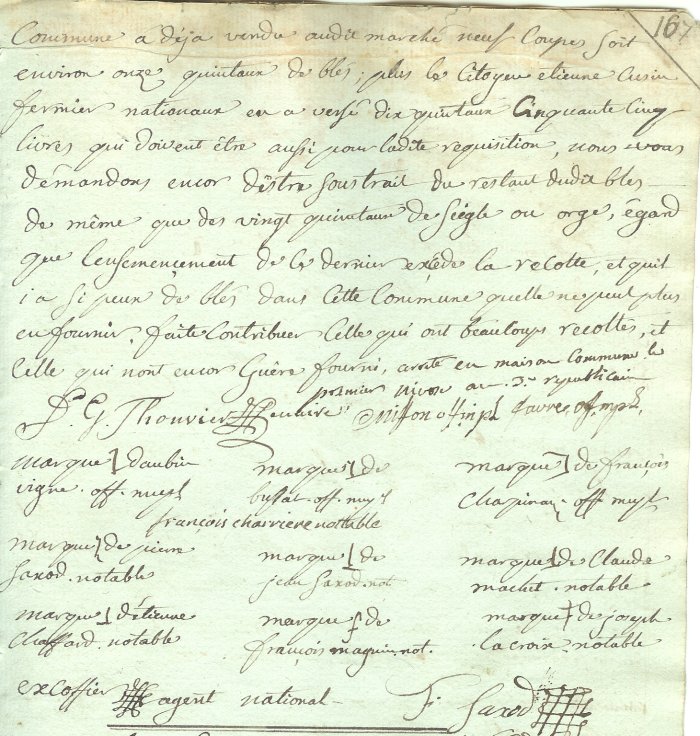 167
Commune a déja vendu audit marché neuf Coupes soit
environ onze quintaux de blés, plus le Citoyen etienne
fermier nationaux en a versé dix quintaux Cinquante Cinq
livres qui doivent être aussi pour ladite requisition, nous vous
démandons encor d'être soustrait du restant dudit blés
de même que des vingt quintaux de siégle ou orge, égard
que l'ensemençement de ce dernier exçéde la recolte, et quil
i a si peux de blés dans Cette Commune quelle ne peut plus
en fournir, faite Contribuer Celle qui ont beaucoups recoltés, et
Celle qui nont encor Guêre fourni, arrété en maison Commune le
premier nivose an 3e republicain
G. Thouvier
marque de aubin
vigne. off. mupl
marque de
off. mupl
marque de françois
off mupl
françois charriere notable
marque de pierre
Saxod. notable
marque de
jean Saxod. not
marque de Claude
machet. notable
marque d'étienne
Chaffard. notable
marque de
françois maguin. not.
marque de joseph
lacroix. notable
excoffier agent national
F. Saxod